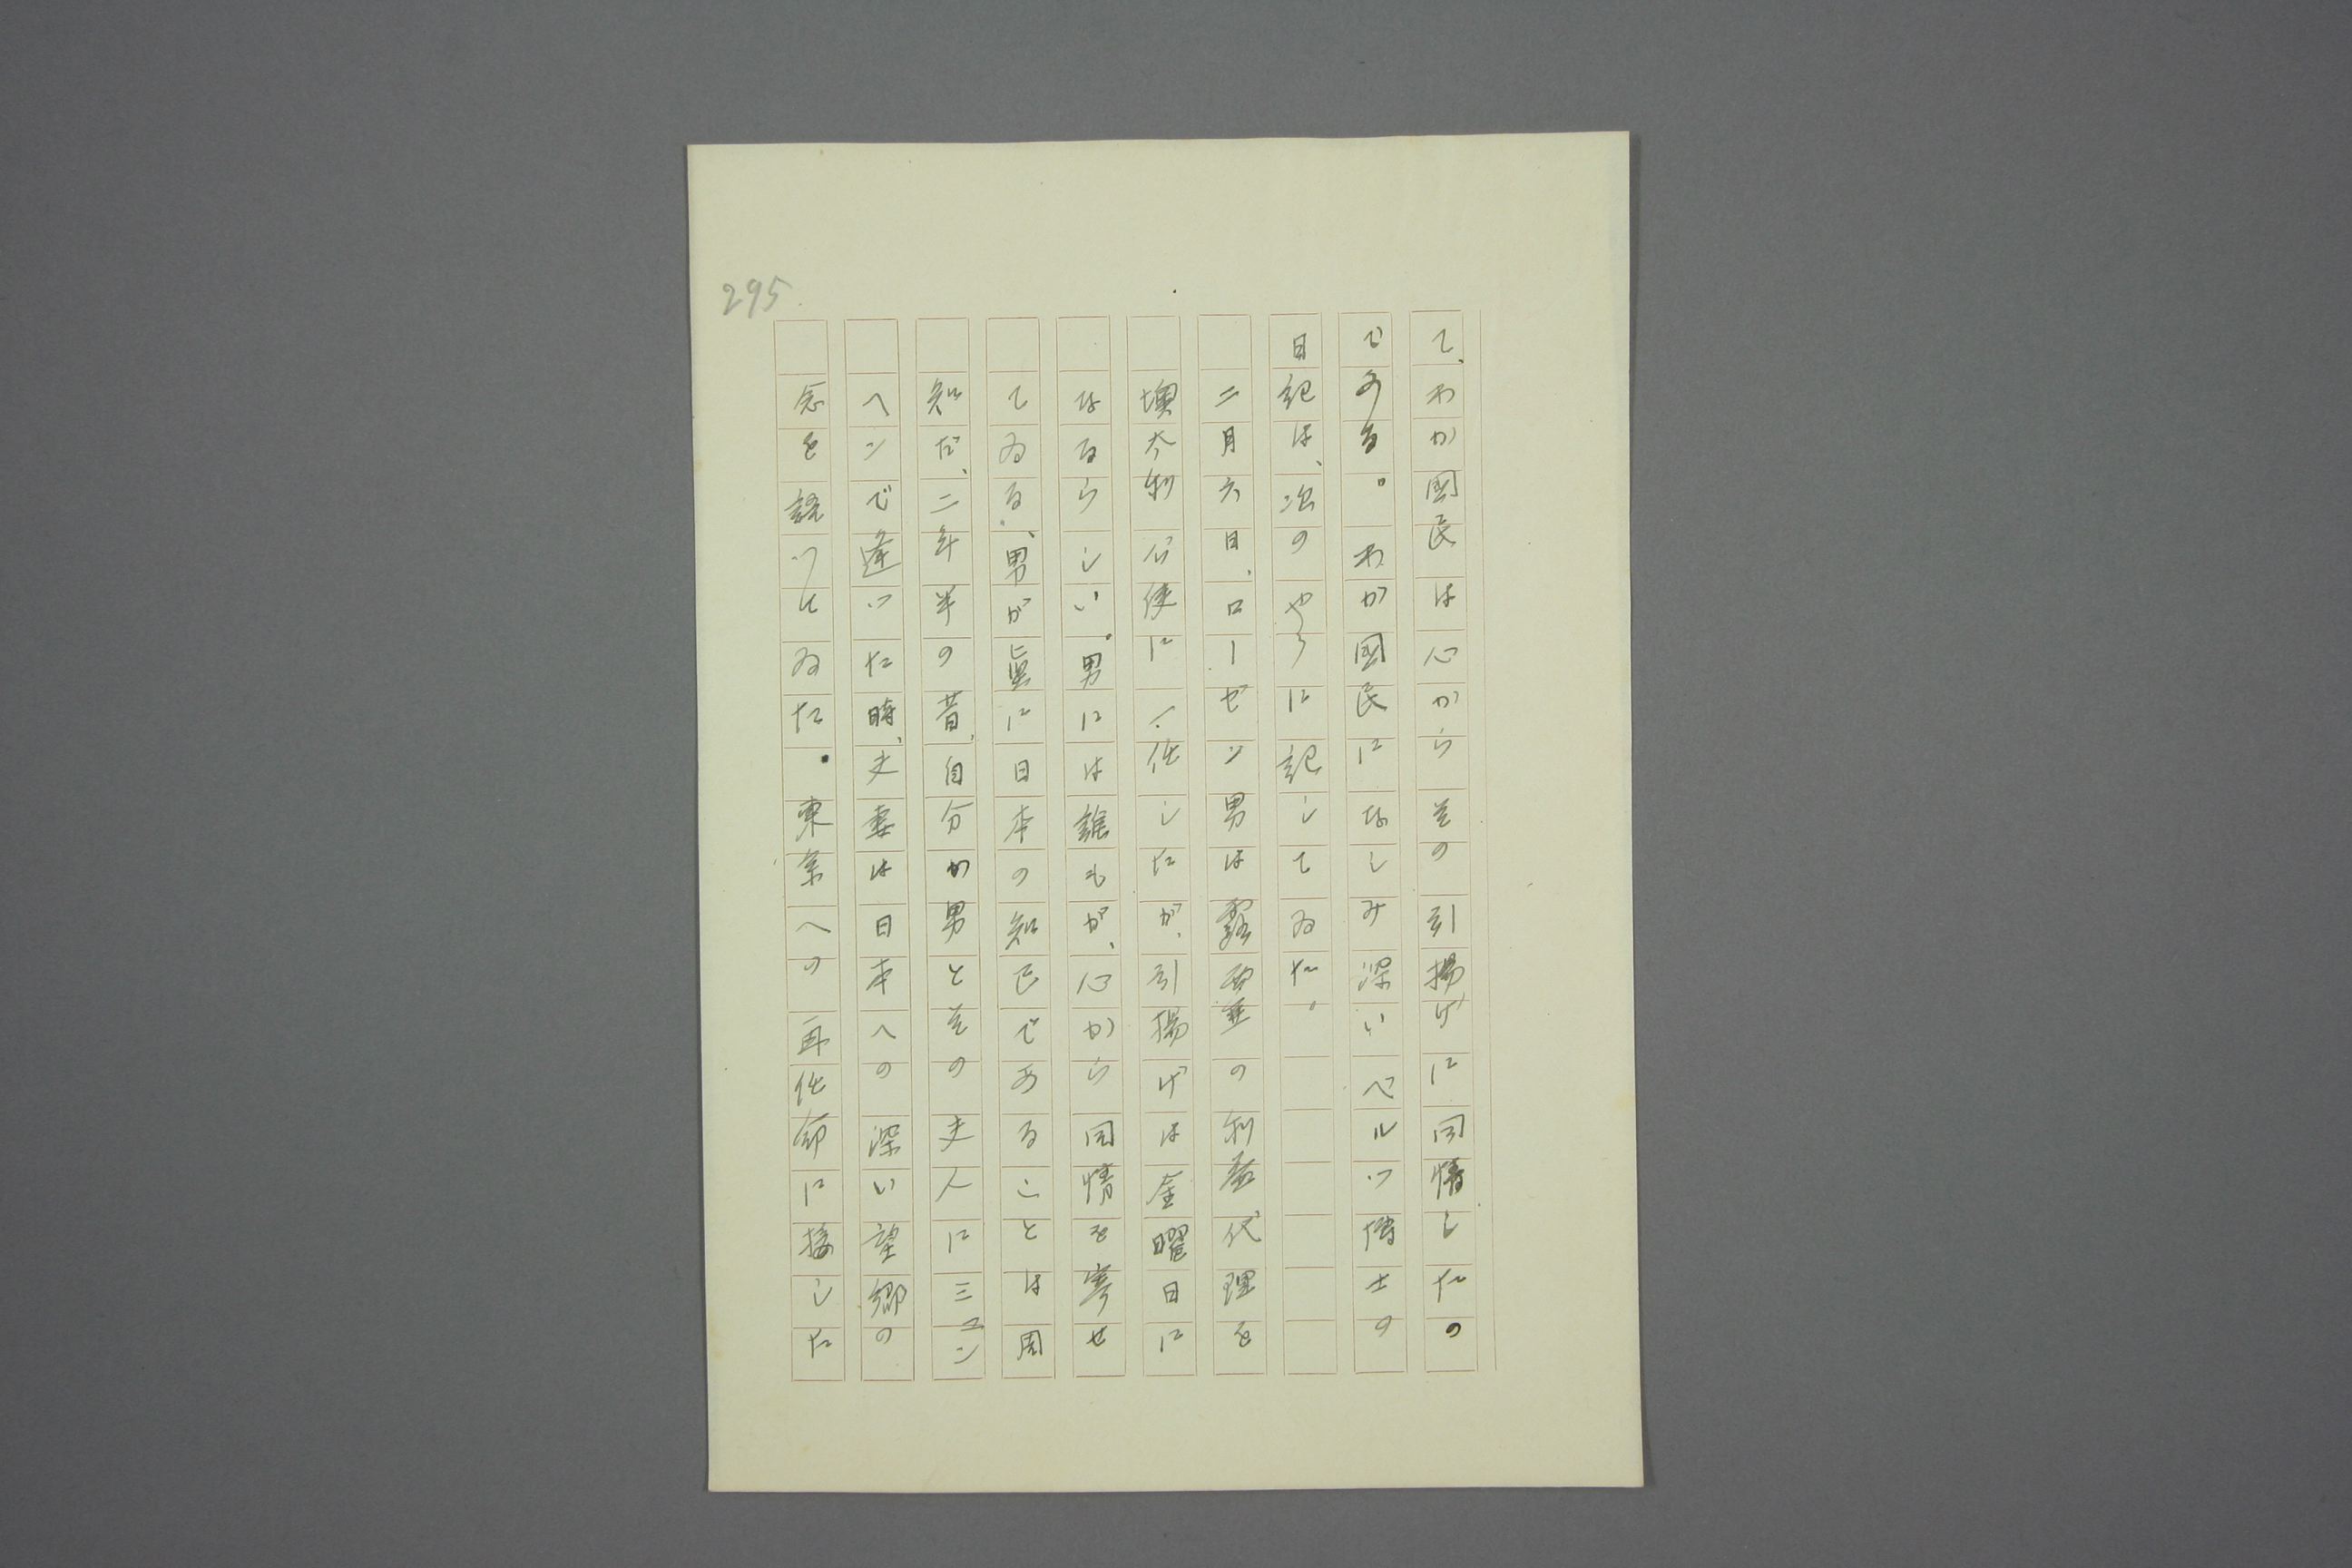 295
て、わが國民は心からその引揚げに同情したの
である。わが國民になじみ深いベルツ博士の
日記は、次のやうに記してゐた。
二月六日、ローゼン男は露西亜の利益代理を
墺太利公使に一任したが、引揚げは金曜日に
なるらしい。男には誰もが、心から同情を寄せ
てゐる、男が眞に日本の知己であることは周
知だ、二年半の昔、自分が男とその夫人にミュン
ヘンで逢つた時、夫妻は日本への深い望郷の
念を語つてゐた。東京への再任命に接した